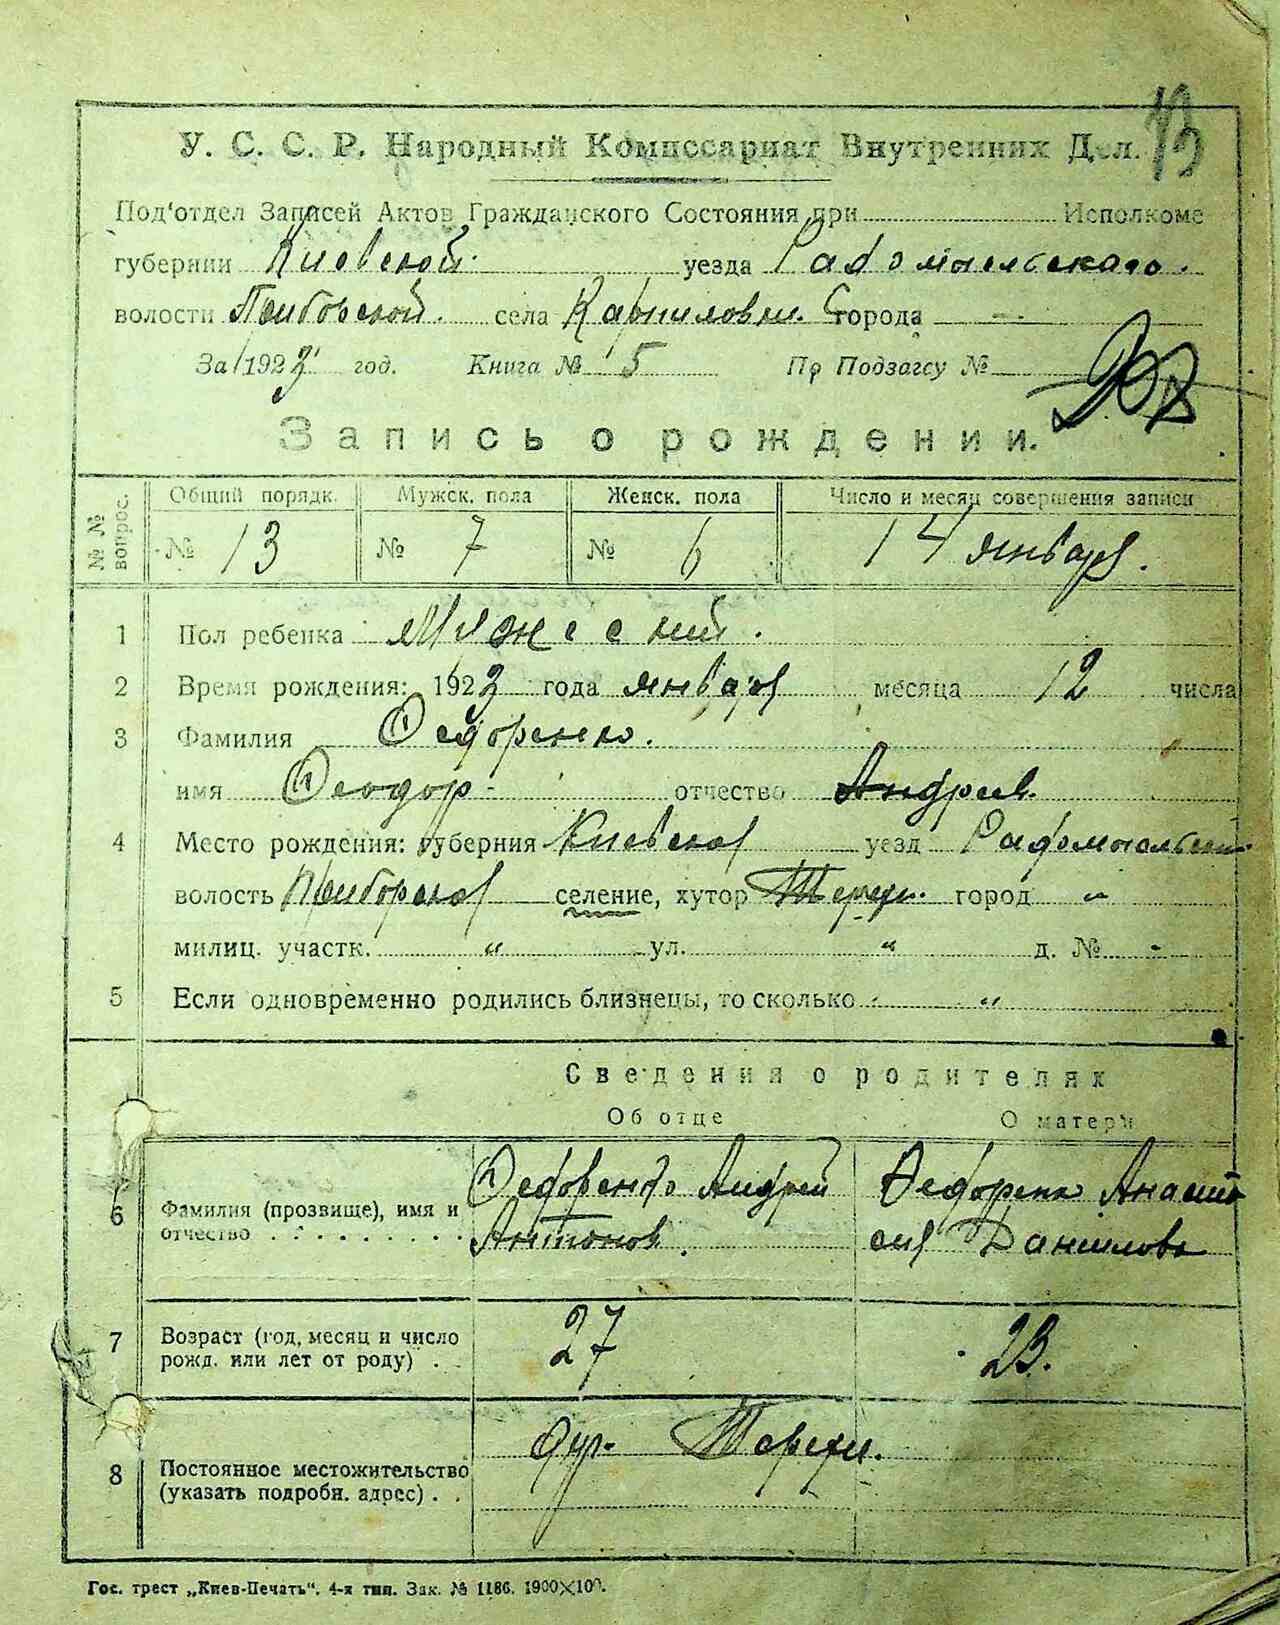 13
У. С. С. Р. Народный Комиссариат Внутренних Дел.
Под'отдел Записей Актов Гражданского Состояния при Исполкоме
губернии Киевской уезда Радомысльскаго.
волости села Карпиловки города
За 1923 год. Книга № 5 По Подзагсу №
Запись о рождении.
№№ вопрос. Общий порядк. Мужск. пола Женск. пола Число и месяц совершения записи
№ 13 № 7 № 6 14 января.
1 Пол ребенка Мужеский.
2 Время рождения: 1923 года января месяца 12 числа
3 Фамилия Федоренко.
имя Феодор отчество Андреев.
4 Место рождения: губерния Киевская уезд Радомысльский
волость селение, хутор город "
милиц. участк. " ул. " д. № -
5 Если одновременно родились близнецы, то сколько "
Сведения о родителях
Об отце О матери
6 Фамилия (прозвище), имя и отчество Федоренко Андрей Антонов. Федоренко Анастасия Данилова
7 Возраст (год, месяц и число рожд. или лет от роду) 27 23.
8 Постоянное местожительство (указать подробн. адрес)
Гос. трест „Киев-Печать". 4-я тип. Зак. № 1186. 1900×100.